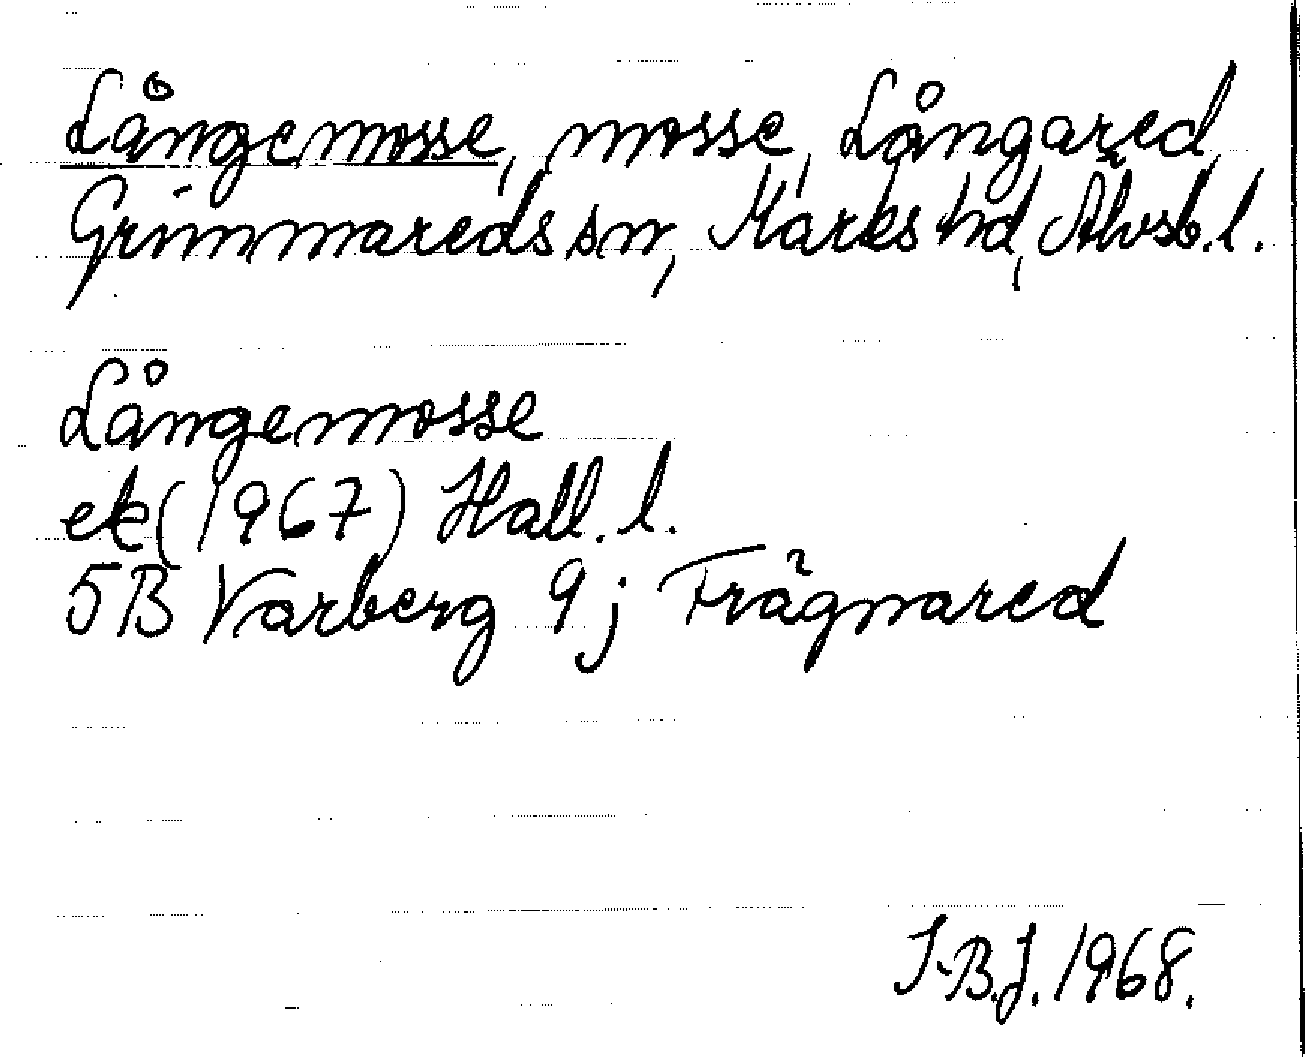 Långemosse, mosse, Långared,
Grimmareds sn, Marks hd, Älvsb.l.
Långemosse
ek (1967) Hall. l.
5B Varberg 9j Frägnared
I-B.J. 1968.